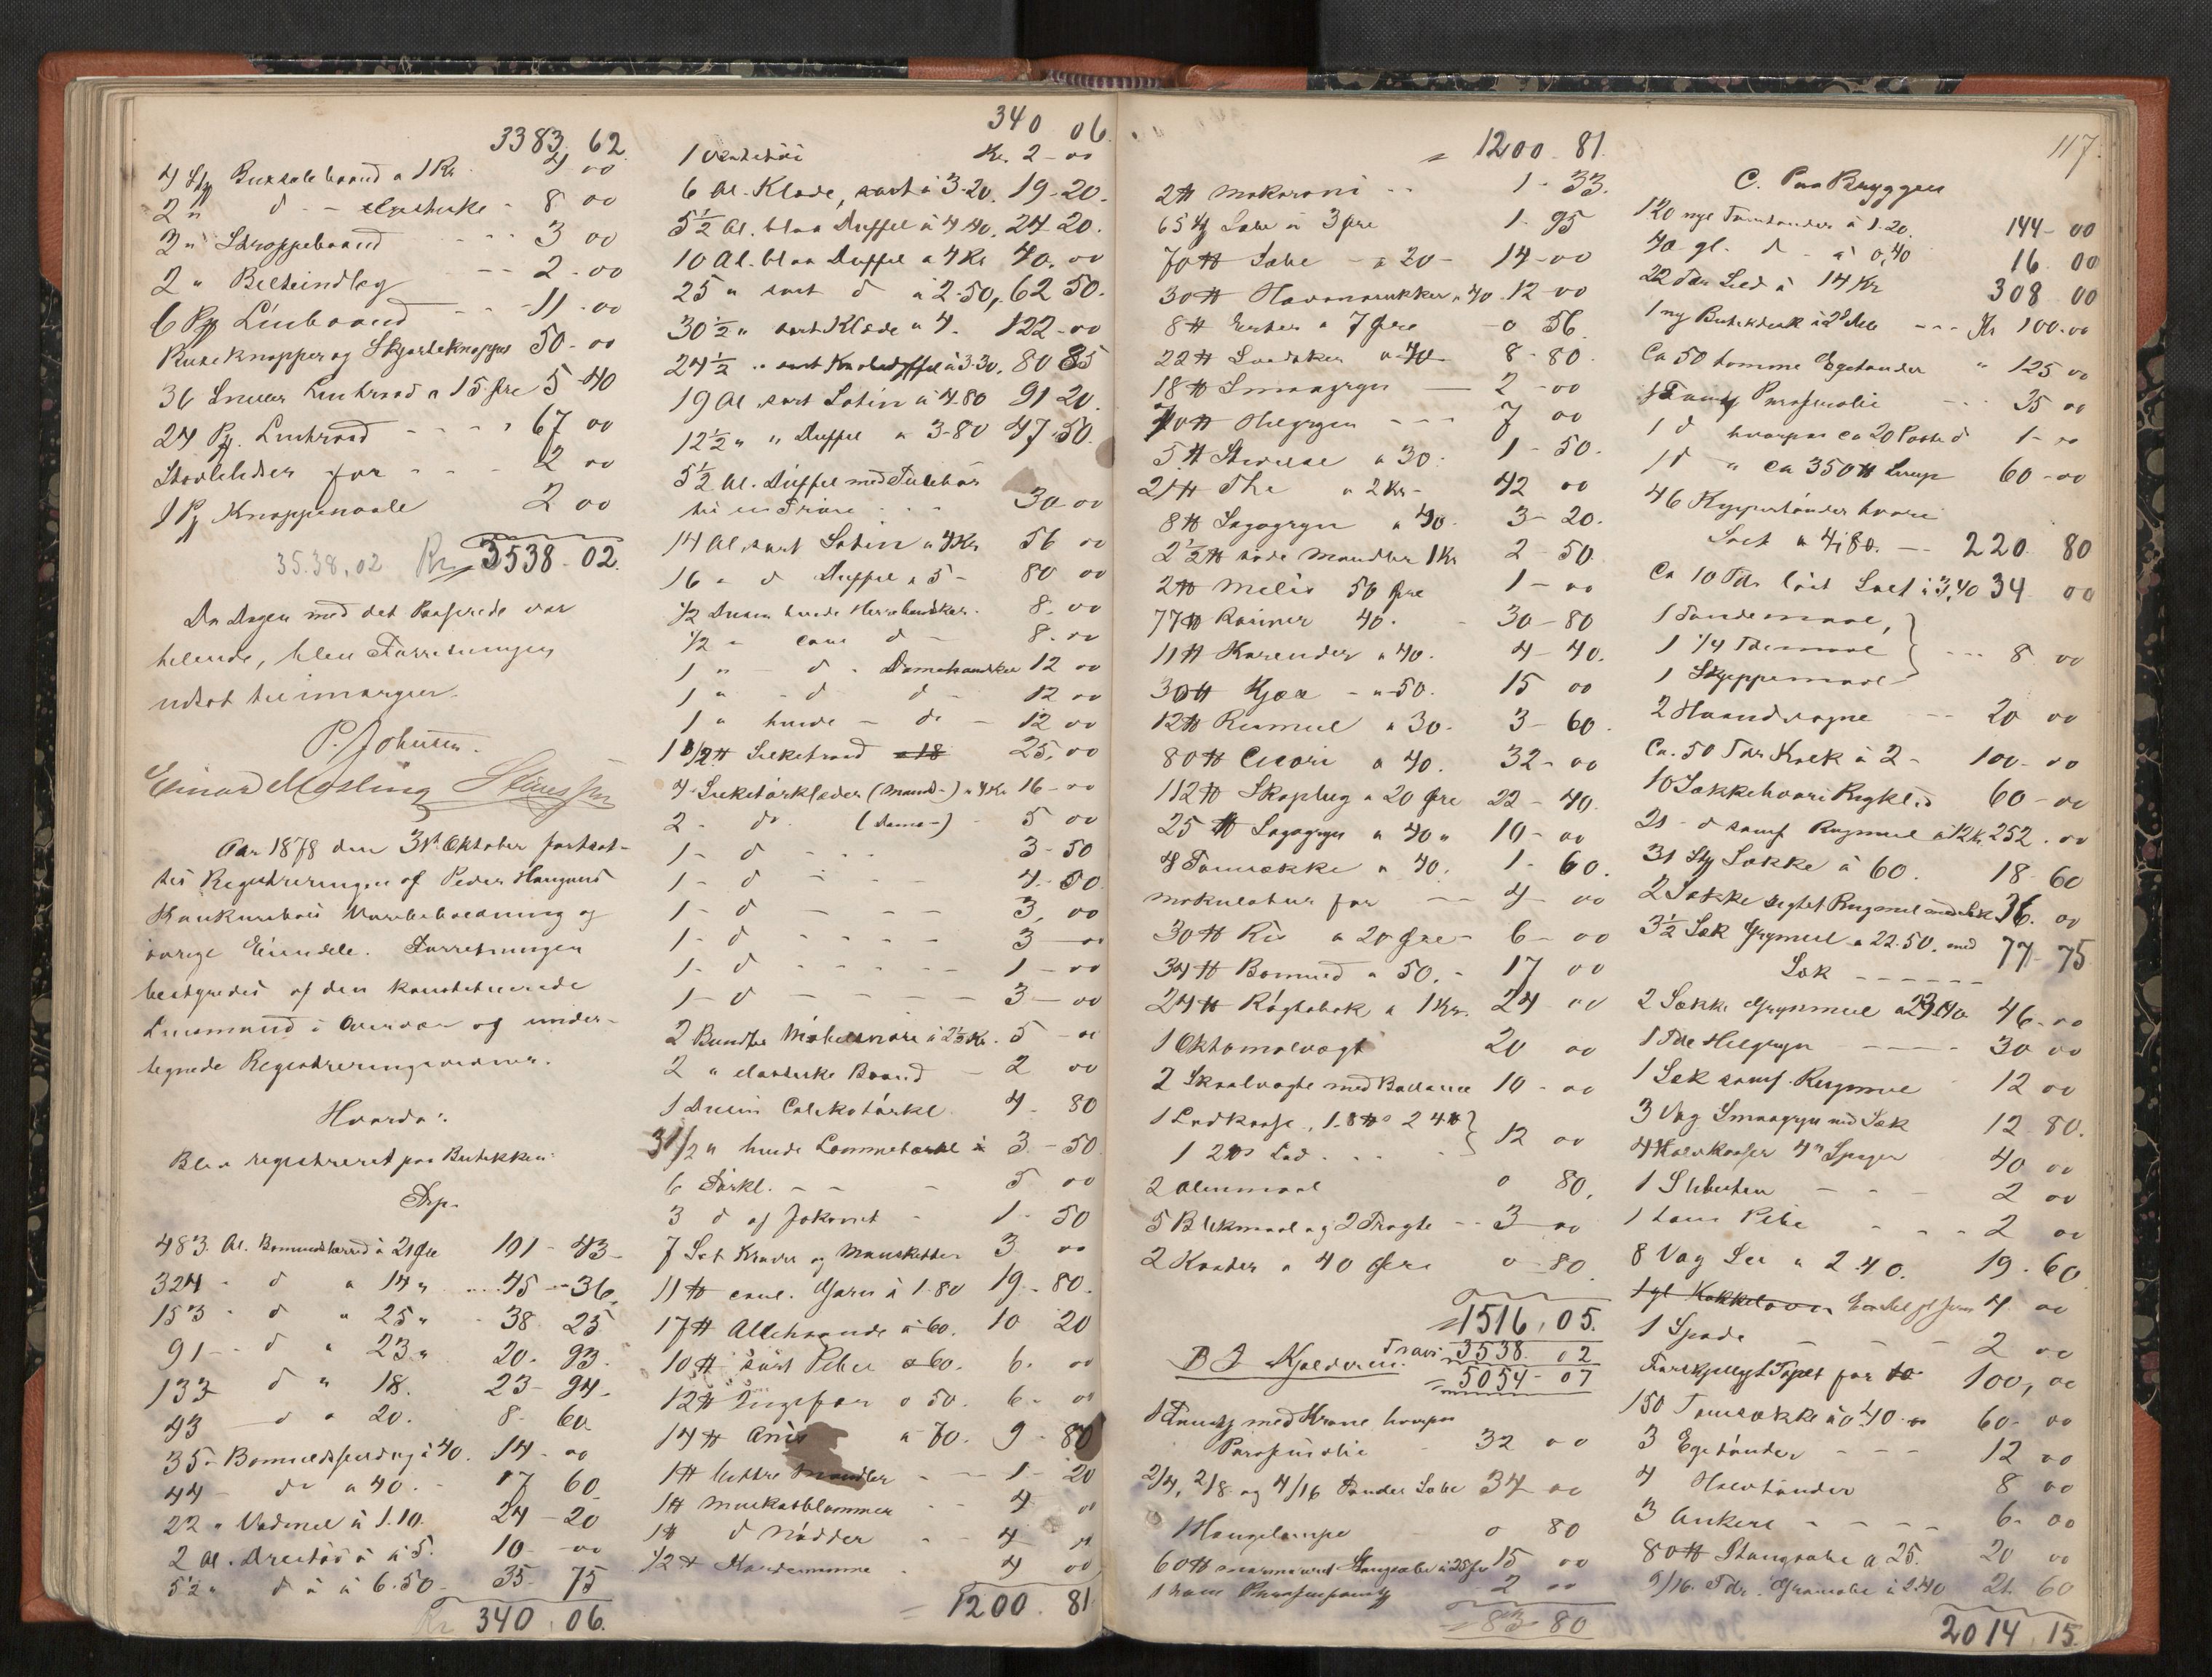 3383. 62
4 Stk Buxsolebaand a 1 Kr. 4 00
2 " d - elastiske - 8 00
3 " Stroppebaand - - - 3 00
2 " Belteindlæg - - 2 - 00
6 Pk Linbaand - - 11 - 00
Buxeknapper og Skjorteknapper 50 - 00
36 Sneller Lintraad a 15 Øre 5 40
24 Pk. Lintraad - - - - 67 00
Støvlelidser for - - - 2 00
1 Pk Knappenaale 2 00
35.38,02 Kr. 3538 - 02.
Da Dagen med det Passerede var
helende, blev Forretningen
udsat til imorgen.
P. Johnsen.
Einar Mosling
Aar 1878 den 31te Oktober fortsat-
tes Registreringen af Peder Haugens
Konkursbos Varebeholdning og
øvrige Eiendele. Forretningen
bestyredes af den konstituerede
Lensmand i Overvær og under-
tegnede Registreringsvidner.
Hvorda:
Blev registreret paa Butikken:
Trsp.
483. Al. Bomuldslærred à 21 Øre 101 - 43 -
324 - d a 14 " 45 - 36.
153 - d " 25 " 38 25
91 - d " 23 " 20. 93.
133 d " 18. 23 - 94.
43 - d " 20. 8 - 60
35 - Bomuldsfoerdug à 40. 14 - 00
44 - do a 40. - 17 60
22 " Vadmel à 1.10. 24 - 20
2 Al. à 5. 10 - 00
5½ " d à 6.50 - 35 - 75
Kr 340. 06.
340 06.
1 Kr. 2 - 00
6 Al. Klæde, sort à 3-20. 19 - 20.
5½ Al. blaa Duffel à 4.40. 24 - 20.
10 Al. blaa Duffel a 4 Kr 40. 00
25 " sort d à 2.50, 62 50.
30½ " sort Klæde a 4. 122 - 00
24½ " sort à 3.30. 80 85
19 Al sort Satin à 4.80 91 20.
12½ " " Duffel a 3-80 47 - 50.
5½ Al. Duffel med Tilbehør
til en Trøie . . . 30 - 00
14 Al. sort Satin a 4 Kr 56 00
16 - d Duffel a 5 - 80 00
½ Dusin hvide Herrehandsker. 8. 00
½ - coul d - 8. 00
1 " - d - Damehandsker 12 00
1 " - d d - 12 00
1 " hvide - do - 12 00
1½ ℔ Silketraad a 18 25, 00
4 Silketørklæder (Mands-) a 4 Kr 16 - 00
2 - do. (Dame-) - 5 00
1 - d - - 3 - 50
1 - d - - 4 - 50
1 - d - - - 3, 00
1 - d - - - - 3 - 00
1 - d - - - - - 1 - 00
1 - d - - - - - 3 - 00
2 Bundter Møbelsnore à 2½ Kr. 5 - 00
2 " elastiske Baand - 2 00
1 Dusin Calikotørkl. 4 - 80
3½ " hvide Lommetørkl à 3 - 50
6 Tørkl. - - - 5 00
3 d af Jakonet - 1 - 50
7 Set Kraver og Mansketter 3 00
11 ℔ coul. Garn à 1.80 19 - 80.
17 ℔ Allehaande à 60. 10 20
10 ℔ sort Peber a 60. 6. 00
12 ℔ Ingefær a 50. 6 - 00
14 ℔ Anis a 70. 9 - 80
1 ℔ bittre Mandler - - 1 - 20
1 ℔ Muskatblommer - - 4 00
1 ℔ d Nødder - 4 00
½ ℔ Kardemomme . 4 00
= 1200. 81
= 1200 - 81.
2 ℔ Makaroni - - 1 - 33.
65 Stk Sæbe a 3 Øre 1. 95
70 ℔ Sæbe - a 20 - 14 - 00
30 ℔ Havanasukker a 40. 12 00
8 ℔ Erter a 7 Øre - 0 56
22 ℔ a 40 - 8 - 80.
18 ℔ Smaagryn - 2 - 00
70 ℔ Helgryn - - - 7 00
5 ℔ Stivelse a 30. 1 - 50.
21 ℔ The a 2 Kr - 42 00
8 ℔ Sagogryn a 40 - 3 - 20.
2½ ℔ søde Mandler 1 Kr 2 - 50.
2 ℔ Melis 50 Øre 1 - 00
77 ℔ Rosiner 40. - 30 - 80
11 ℔ Korender a 40. 4 - 40.
30 ℔ - a 50. 15 00
12 ℔ Rismel a 30. 3 - 60.
80 ℔ Cicori a 40. 32 - 00
112 ℔ Skaaplug a 20 Øre 22 - 40.
25 ℔ Sagogryn a 40 " 10 - 00
4 Tomsække a 40. 1 - 60.
Makulatur for - 4 - 00
30 ℔ Ris a 20 Øre - 6 - 00
34 ℔ Bomuld a 50. - 17 00
24 ℔ Røgtobak a 1 Kr. 24 00
1 Oktomalvægt 20 00
2 Skaalvægte med Ballance 10 - 00
1 Lodkasse, 1. 8 ℔s 2 4 ℔ }
1 2 ℔s Lod . . . } 12 00
2 Alenmaal 0 80.
5 Blikmaal og 2 Tragte - - 3 - 00
2 Koster a 40 Øre 0 - 80
= 1516. 05.
B I Kjelderen. Trans: 3538. 02
= 5054 - 07
1 med Krane hvorpaa
Parafinolie - 32 00
2/4, 2/8 og 4/16 Tønder Sæbe 34 00
1 Hængelampe - 0 80
60 ℔ marmoreret Stangsæbe à 25 Øre 15 00
1 2 00
= 83 - 80
117.
C. Paa Bryggen
120 nye Tomtønder à 1.20. 144 - 00
40 gl. d - a 0,40 16 00
22 Tdr Sild à 14 Kr 308 00
1 ny Butikdisk i 2 Dele - - - Kr 100.00
Ca 50 tomme Egetønder " 125 00
1 Parafinolie - - - 35 00
1 d hvorpaa ca 20 Potter d 1 - 00
1 d " ca 350 ℔ Sirup 60 - 00
46 Kyppertønder hvori
Salt a 4,80. - - 220 80
Ca 10 Tdr løst Salt à 3,40 34 00
1 Tøndemaal, }
1 ¼ Tdemaal } - - - 8 00
1 Skjeppemaal }
2 Haandvogne - - 20 00
Ca. 50 Tdr Koks à 2 - 100 - 00
10 Sækkehvori Rugklid 60 - 00
21 - d samf Rugmel à 12 Kr. 252. 00
31 Stk Sække à 60. 18 - 60
2 Sække sigtet Rugmel med Sæk 36. 00
3½ Sæk Grynmel a 22.50. med
Sæk - - - - - 77 - 75
2 Sække Grynmel 46 - 00
1 Tde Helgryn - - - - 30 00
1 Sæk samf. Rugmel 12 00
3 Vog Smaagryn med Sæk 12 80.
4 40 00
1 Slibesten - - - 2 00
1 tom Pibe - - - 2 00
8 Vog Lin a 2.40. 19. 60
1 gl Kakkelovn 4 00
1 Spade - - - 2 00
Forskjelligt Tapet for 100, 00
150 Tomsække à 0.40 60. 00
3 Egetønder - - - 12 00
4 Halvtønder 8 00
3 Ankere - - - - 6 - 00
80 ℔ Stangsæbe à 25. 20 00
9/16. Tdr. Grønsæbe à 2.40 21. 60
2014. 15.